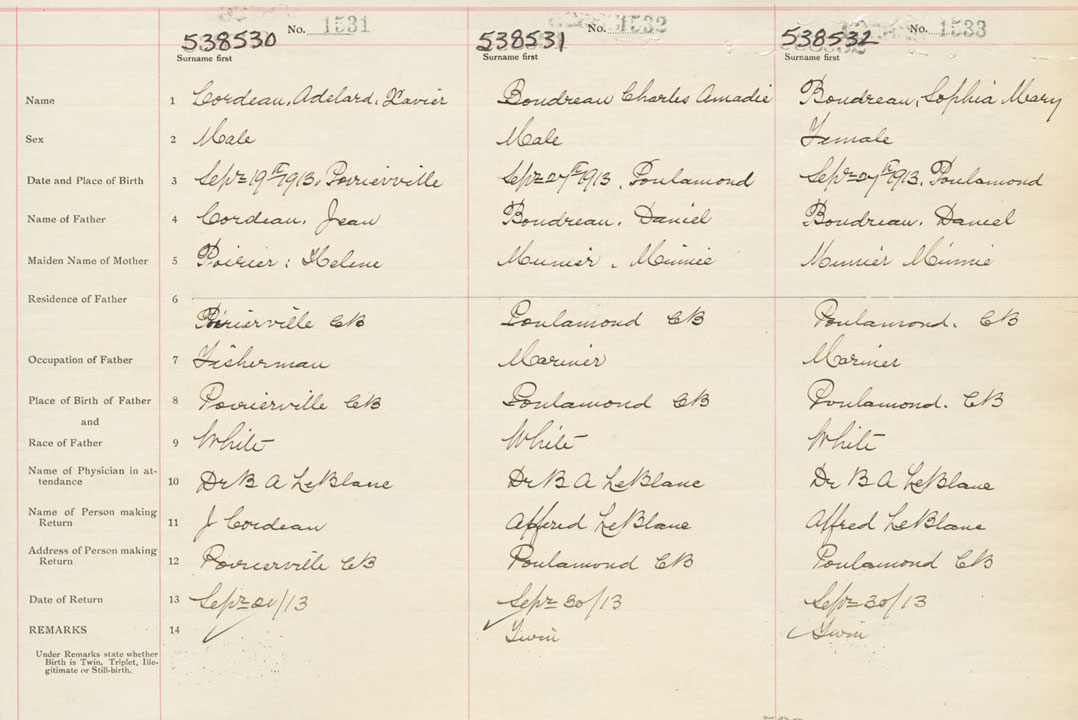 No. 1531 No. 1532 No. 1533
538530 538531 538532
Surname first Surname first Surname first
Name 1 Cordeau, Adelard, Xavier Boudreau Charles Amadie Boudreau, Sophia Mary
Sex 2 Male Male Female
Date and Place of Birth 3 Sept 19th 1913, Poirierville Sept 27th 1913, Poulamond Sept 27th 1913, Poulamond
Name of Father 4 Cordeau, Jean Boudreau, Daniel Boudreau, Daniel
Maiden Name of Mother 5 Poirier; Helene Munier, Minnie Munier Minnie
Residence of Father 6
Poirierville CB Poulamond CB Poulamond, CB
Occupation of Father 7 Fisherman Mariner Mariner
Place of Birth of Father 8 Poirierville CB Poulamond CB Poulamond, CB
and
Race of Father 9 White White White
Name of Physician in at-
tendance 10 Dr B A LeBlanc Dr B A LeBlanc Dr B A LeBlanc
Name of Person making
Return 11 J Cordeau Alfred LeBlanc Alfred LeBlanc
Address of Person making
Return 12 Poirierville CB Poulamond CB Poulamond CB
Date of Return 13 Sept /13 Sept 30/13 Sept 30/13
REMARKS 14 Twin Twin
Under Remarks state whether
Birth is Twin, Triplet, Ille-
gitimate or Still-birth.